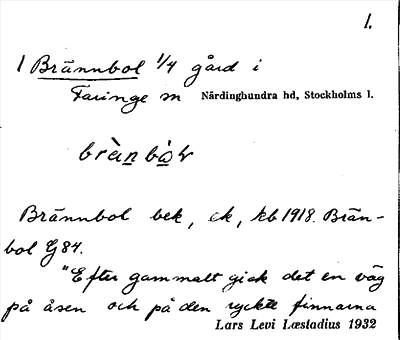 1.
1 Brännbol 1/4 gård i
Faringe sn Närdinghundra hd, Stockholms l.
Brännbol bek, ek, kb 1918. Brän-
bol G 84.
"Efter gammalt gick det en väg
på åsen och på den ryckte finnarna
Lars Levi Læstadius 1932